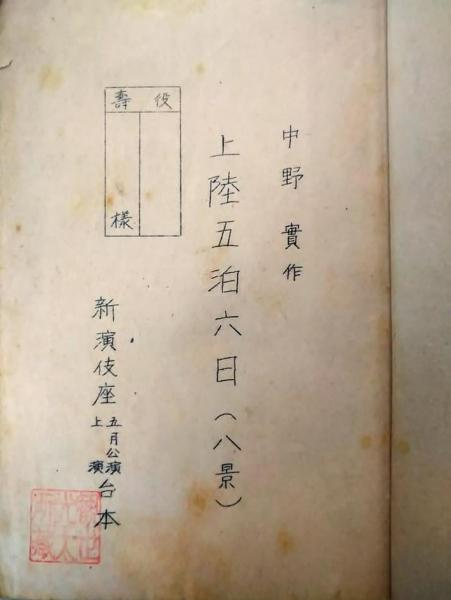 中野 實作
上陸五泊六日(八景)
役
壽
樣
新演伎座 五月公演
上演
台本